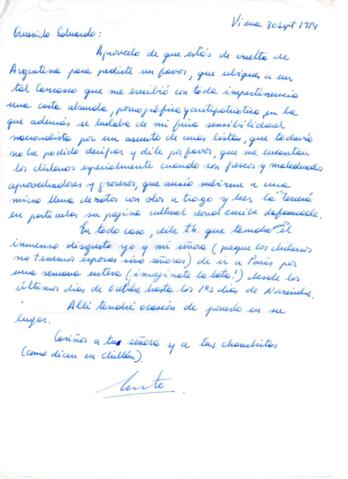 Viena 30 sept 1984
Querido Eduardo:
Aprovecho de que estás de vuelta de
Argentina para pedirte un favor, que ubiques a un
tal Carrasco que me escribió con toda impertinencia
una carta absurda, pornográfica y antipatriótica, en la
que además se burlaba de mi fina sensibilidad
nacionalista por un asunto de unas listas, que todavía
no he podido descifrar y dile por favor, que me encantan
los chilenos especialmente cuando son frescos y maleducados
aprovechadores y groseros, que ansío subirme a una
micro llena de rotos con olor a trago y leer la "tercera"
en particular su página cultural donde escribe
En todo caso, dile que tendré el
inmenso disgusto yo y mi señora (porque los chilenos
no tenemos esposas sino señoras) de ir a París por
una semana entera (¡imagínate la lata!) desde los
últimos días de Octubre hasta los 1ros días de Noviembre.
Allí tendré ocasión de ponerlo en su
lugar.
Cariños a tu señora y a tus chanchitos
(como dicen en Chillán)